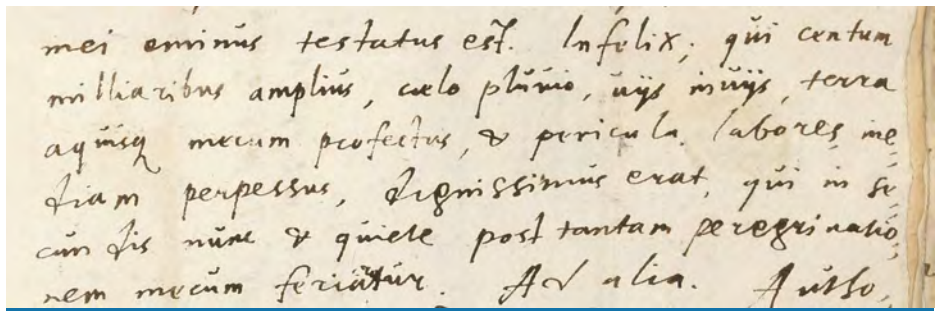 mei eminus testatus est. Infelix, qui centum
milliaribus amplius, cælo pluuio, uijs inuijs, terra
aquisq mecum profectus, & pericula, labores, ine,
diam perpessus, dignissimus erat, qui in se,
cundis nunc & quiete post tantam peregrinatio,
nem mecum feriatur. Ad alia. Autho,